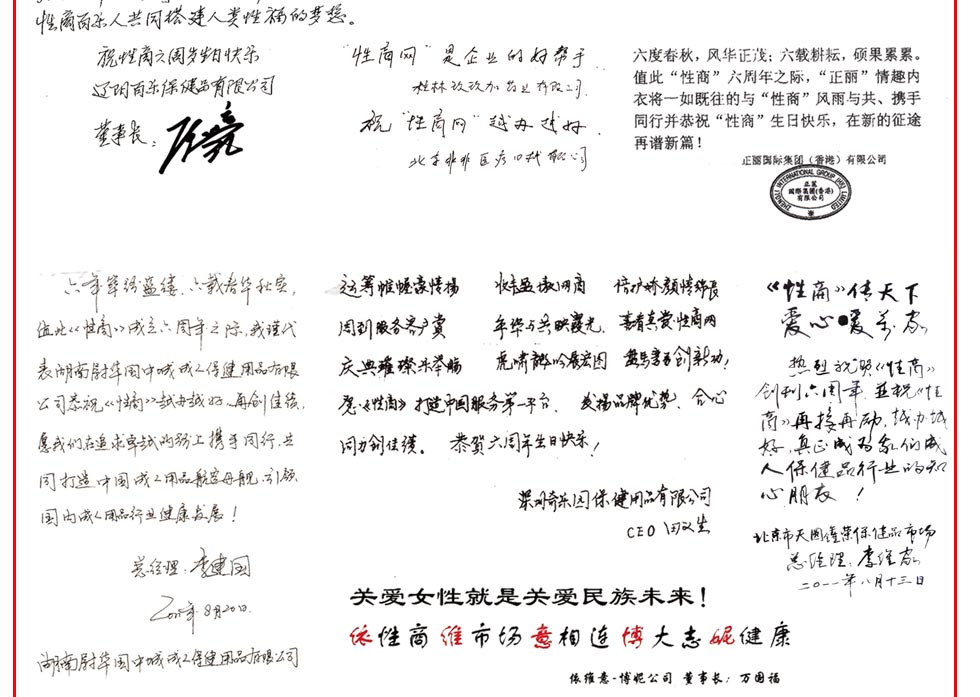 性商百乐人共同搭建人类性福的梦想。
祝性商六周岁生日快乐
辽阳百乐保健品有限公司
董事长：
"性商网"是企业的好帮手
桂林玫玫加药业有限公司
祝"性商网"越办越好
北京非非医疗口械有限公司
六度春秋，风华正茂；六载耕耘，硕果累累。
值此“性商”六周年之际，“正丽”情趣内
衣将一如既往的与“性商”风雨与共、携手
同行并恭祝“性商”生日快乐，在新的征途
再谱新篇！
正丽国际集团（香港）有限公司
ZHENGLI INTERNATIONAL GROUP (HK) LIMITED
正麗
國際集團(香港)
有限公司
六年筚路蓝缕，六载春华秋实，
值此《性商》成立六周年之际，我谨代
表湖南尉华国中城成人保健用品有限
公司恭祝《性商》越办越好、再创佳绩，
愿我们在追求卓越的路上携手同行，共
同打造中国成人用品航空母舰，引领
国内成人用品行业健康发展！
总经理：李建国
8月20日
湖南尉华国中城成人保健用品有限公司
运筹帷幄豪情扬
周到服务客户赏 年华与共映霞光
庆典璀璨乐举觞 虎啸龙吟展宏图
愿《性商》打造中国服务第一平台、发扬品牌优势、合心
同力创佳绩。恭贺六周年生日快乐！
深圳奇乐园保健用品有限公司
CEO
《性商》传天下
爱心暖万家
热烈祝贺《性商》
创刊六周年，并祝《性
商》再接再励，越办越
好，真正成为我们成
人保健品行业的知
心朋友！
北京市天圆隆荣保健品市场
总经理：李维家
二〇一一年八月十三日
关爱女性就是关爱民族未来！
依性商维市场意相连博大志妮健康
依维意-博妮公司 董事长：万国福